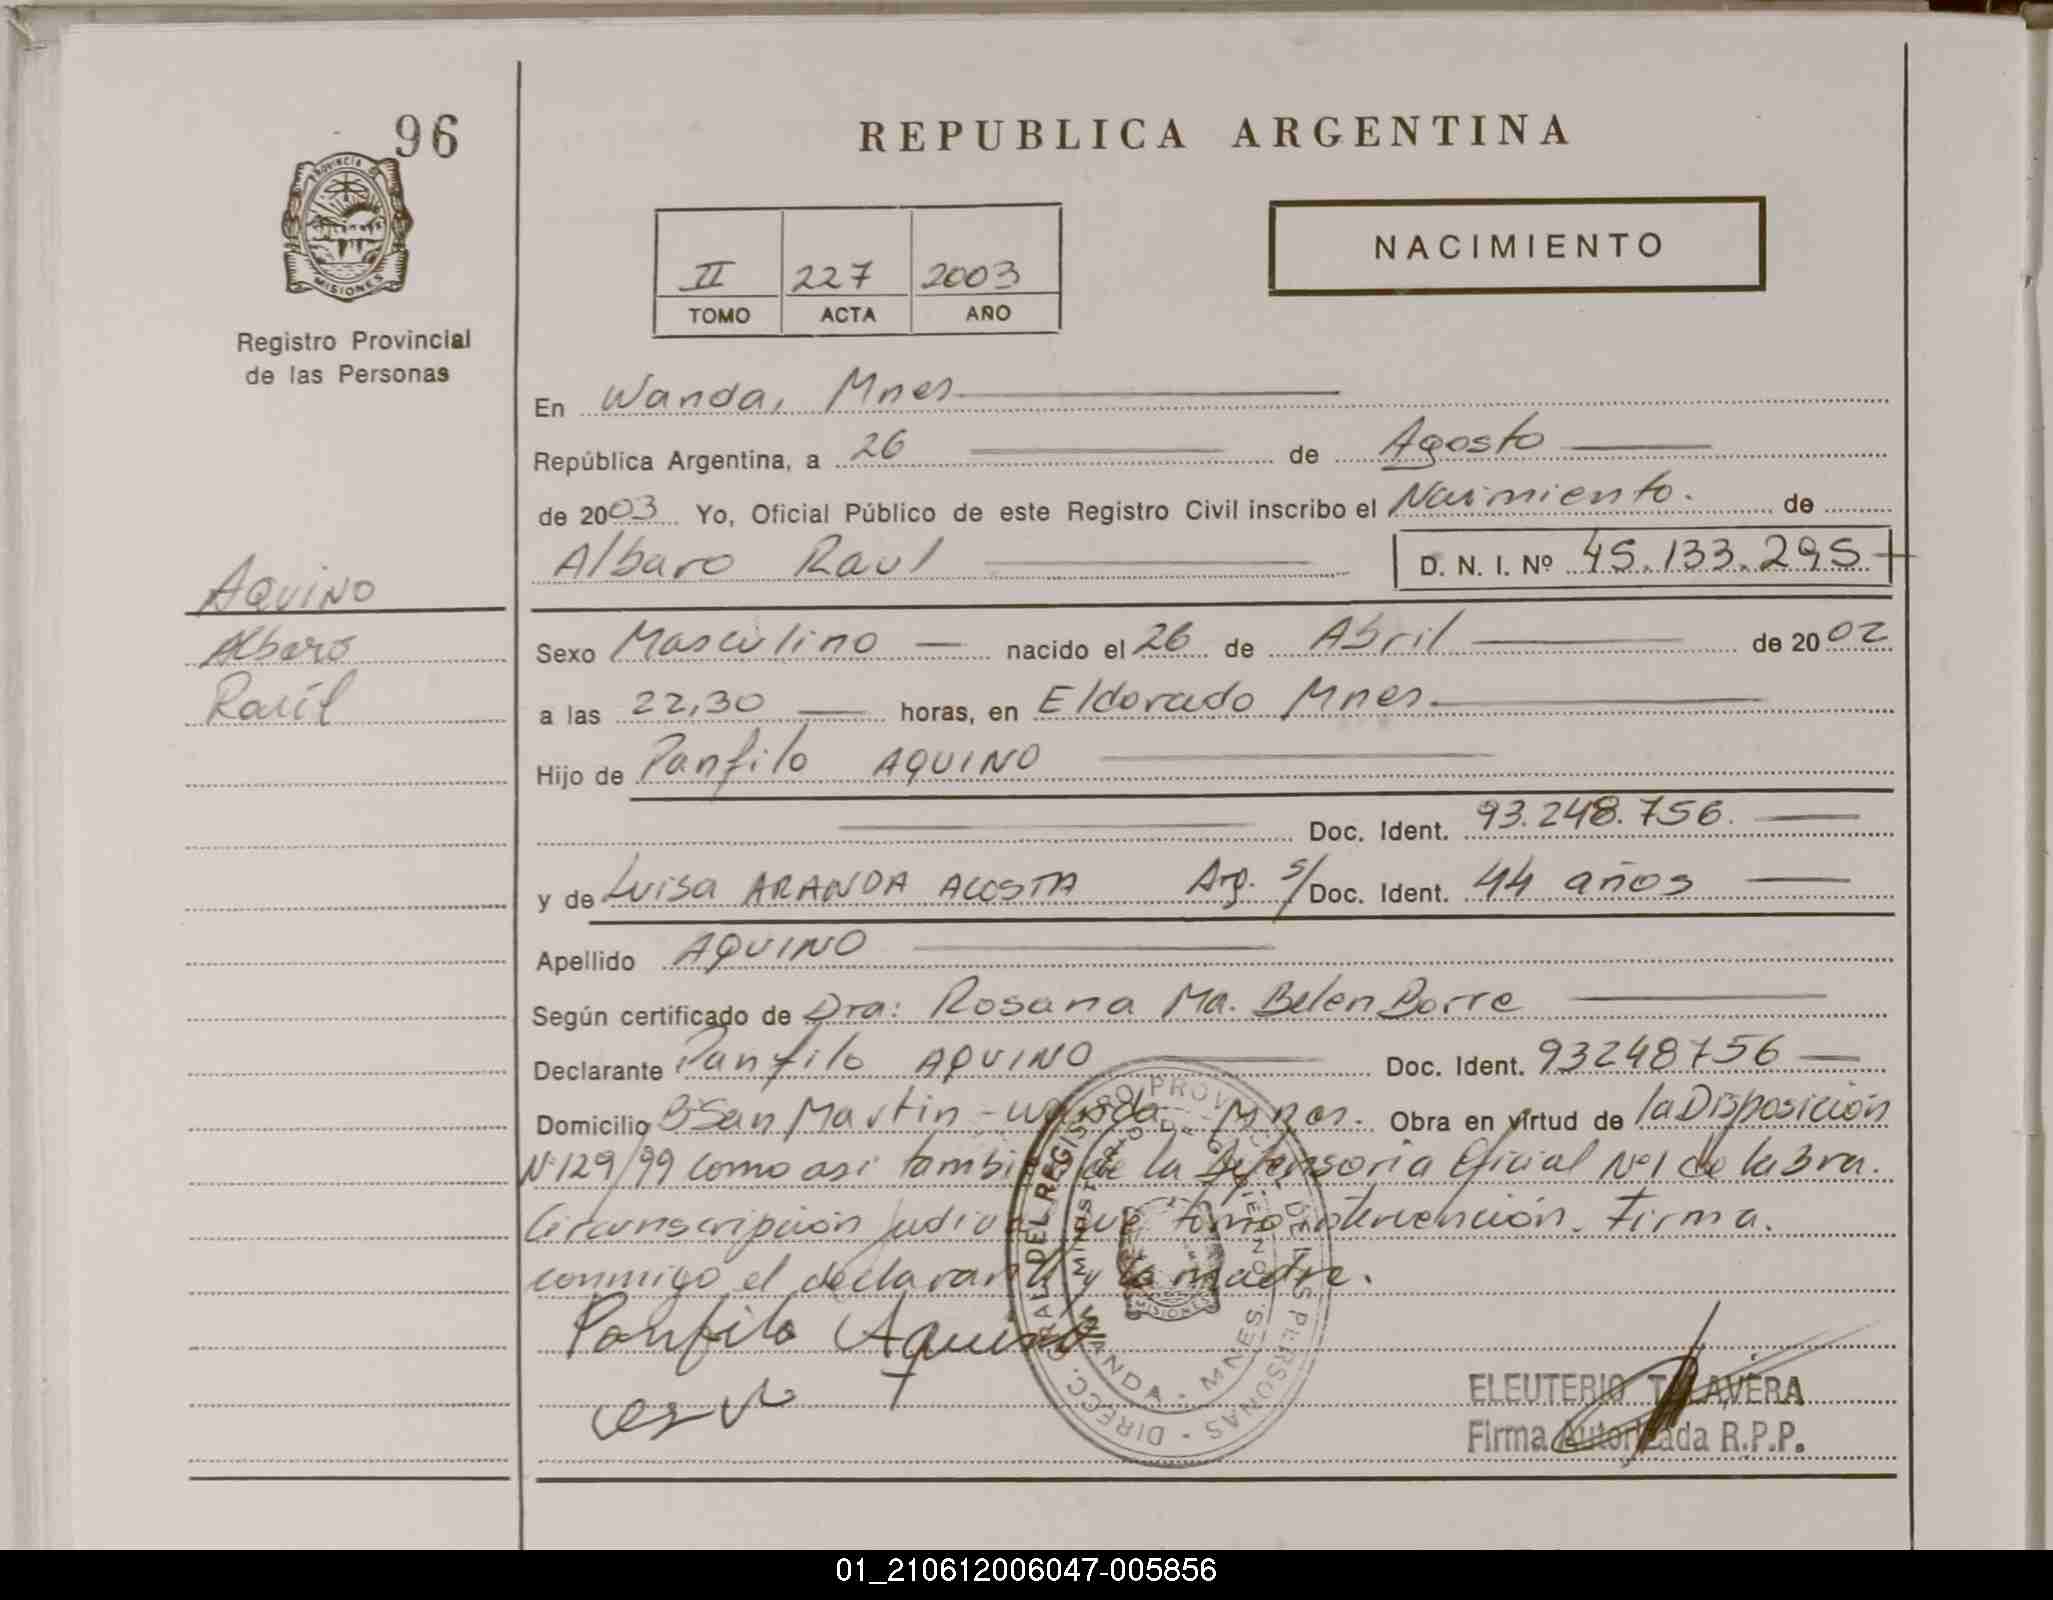 96
PROVINCIA DE
MISIONES
Registro Provincial
de las Personas
REPUBLICA ARGENTINA
II 227 2003
TOMO ACTA AÑO
NACIMIENTO
En Wanda, Mnes
República Argentina, a 26 de Agosto
de 2003 Yo, Oficial Público de este Registro Civil inscribo el Nacimiento. de
Albaro Raul D. N. I. Nº 45.133.295
AQUINO
Albaro
Raúl
Sexo Masculino nacido el 26 de Abril de 2002
a las 22,30 horas, en Eldorado Mnes
Hijo de Panfilo AQUINO
Doc. Ident. 93.248.756.
y de Luisa ARANDA ACOSTA Arg. s/ Doc. Ident. 44 años
Apellido AQUINO
Según certificado de Dra: Rosana Ma. Belen Borre
Declarante Panfilo AQUINO Doc. Ident. 93248756
Domicilio Bº San Martin - Wanda Mnes. Obra en virtud de la Disposición
Nº 129/99 como asi tambien de la Defensoria Oficial Nº1 de la 3ra.
Circunscripción judicial que tomo intervención. Firma.
conmigo el declarante y la madre.
Panfilo Aquino
DIRECC. GRAL DEL REGISTRO PROVINC. DE LAS PERSONAS
WANDA - MNES.
MISIONES
ELEUTERIO TALAVERA
Firma Autorizada R.P.P.
01_210612006047-005856